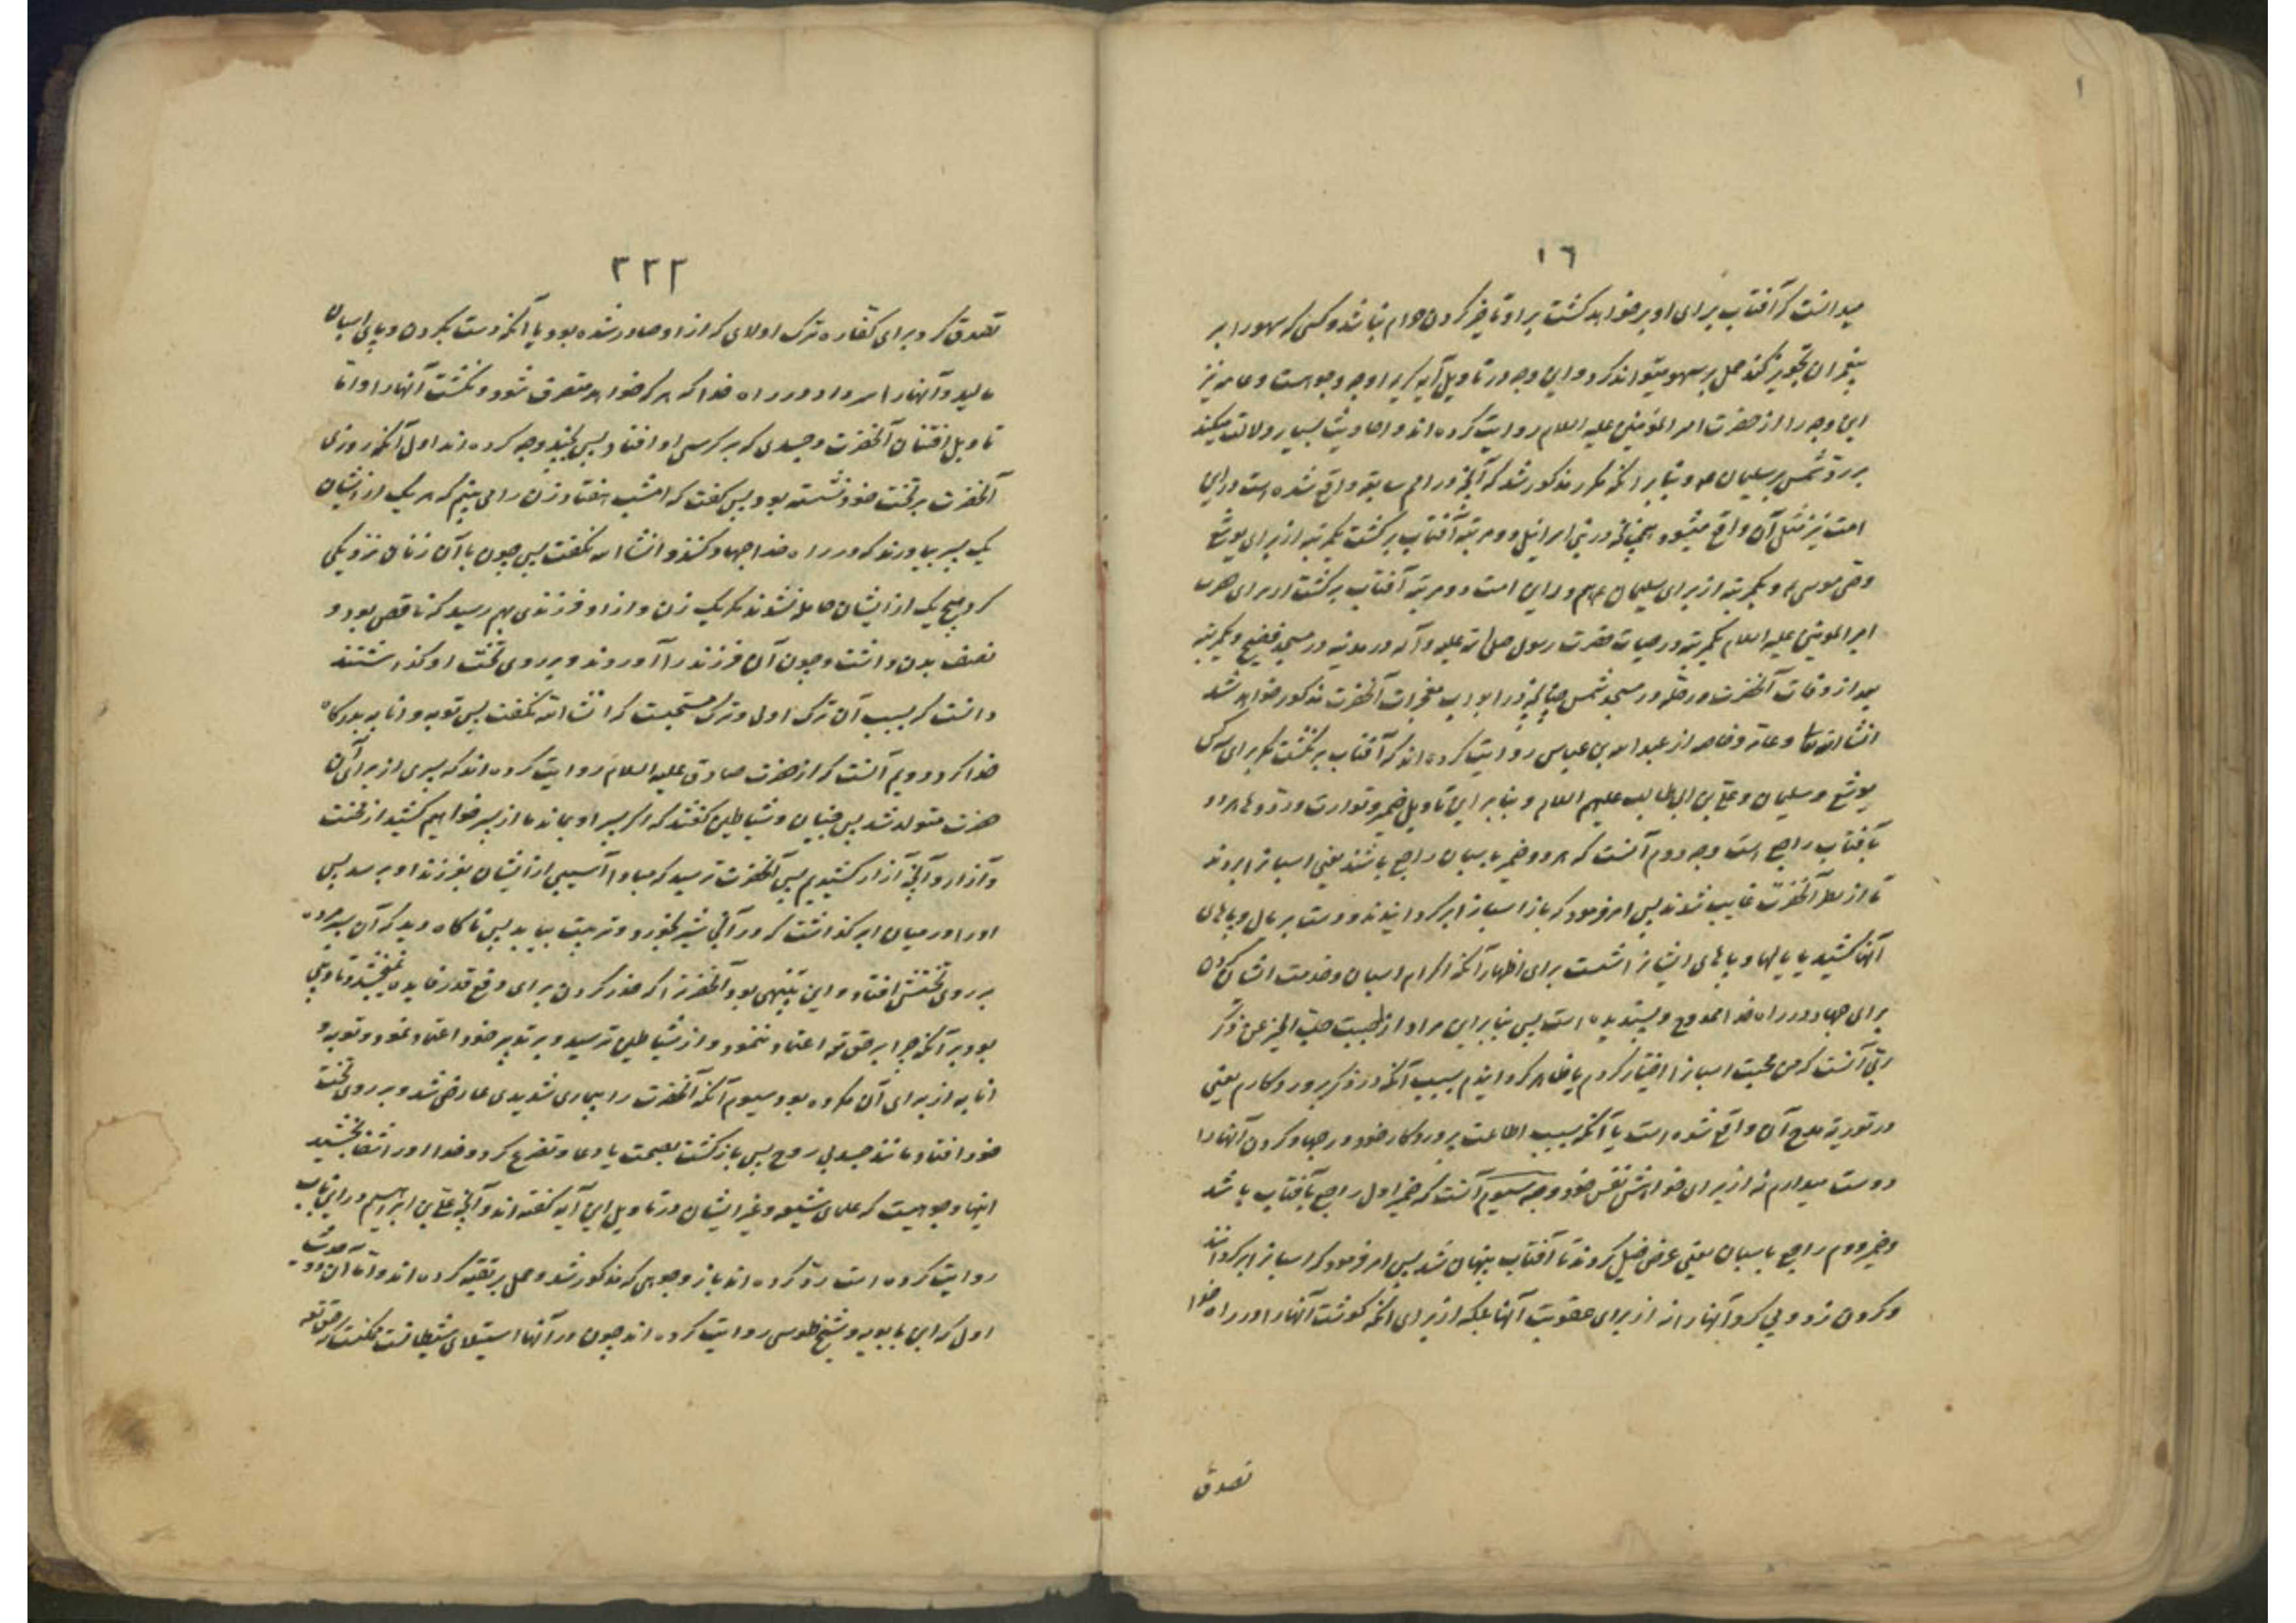 ١٦
میدانست که آفتاب برای او بر خواهد کشت بر او تاخیر کردن حرام نباشد و کسی که سهو را بر
پیغمبران تجویز کند حمل بر سهو میتواند کرد و این وجه در تاویل آیه کریمه اوجه وجوهست و عامه نیز
این وجه را از حضرت امیر المؤمنین علیه السلام روایت کرده اند و احادیث بسیار دلالت میکند
بر رد شمس بر سلیمان ع و بنابر انکه مکرر مذکور شد که آنچه در امم سابقه واقع شده است در این
امت نیز مثل آن واقع میشود و چنانچه در بنی اسرائیل دو مرتبه آفتاب برکشت یکمرتبه از برای یوشع
وصی موسی ع و یکمرتبه از برای سلیمان ع هم در این امت دو مرتبه آفتاب برکشت از برای حضرت
امیر المومنین علیه السلام یکمرتبه در حیات حضرت رسول صلی الله علیه و آله در مدینه در مسجد فضیخ و یکمرتبه
بعد از وفات آنحضرت در حله در مسجد شمس چنانچه در ابواب معجزات آنحضرت مذکور خواهد شد
انشاءالله تعالی و عامه و خاصه از عبدالله بن عباس روایت کرده اند که آفتاب برنکشت مکر برای سه کس
یوشع و سلیمان و علی بن ابی طالب علیهم السلام و بنابر این تاویل ضمیر توارت و ردوها هر دو
بآفتاب راجع است وجه دوم آنست که هر دو ضمیر باسبان راجع باشند یعنی اسبانرا بردند
تا از نظر آنحضرت غایب شدند پس امر فرمود که باز اسبانرا بر کردانیدند و دست بر یال و پاهای
آنها کشید یا یالها و پاهای ایشانرا شست برای اظهار آنکه اکرام اسبان و خدمت ایشان کردن
برای جهاد در راه خدا ممدوح و پسندیده است پس بنابر این مراد از احببت حب الخیر عن ذکر
ربی آنست که من محبت اسبانرا اختیار کردم یا ظاهر کردانیدم بسبب آنکه در ذکر پروردکارم یعنی
در توریة مدح آن واقع شده است یا آنکه بسبب اطاعت پروردکار خود در جهاد کردن آنها را
دوست میدارم نه از برای خواهش نفس خود وجه سیوم آنست که ضمیر اول راجع بآفتاب باشد
و ضمیر دوم راجع باسبان یعنی عرض خیل کردند تا آفتاب پنهان شد پس امر فرمود که اسبانرا بر کردانند
و کردن زد و پی کرد آنها را نه از برای عقوبت آنها بلکه از برای انکه کوشت آنها را در راه خدا
تصدق
٣٢٢
تصدق کرد برای کفاره ترک اولای که از او صادر شده بود یا آنکه دست بکردن و پای اسبان
مالید و آنها را سر داد در راه خدا که هر که خواهد متصرف شود و نکشت آنها را و اما
تاویل افتتان آنحضرت و جسدی که بر کرسی او افتاد پس بچند وجه کرده اند اول آنکه روزی
آنحضرت بر تخت خود نشسته بود پس کفت که امشب هفتاد زن را می بینم که هر یک از ایشان
یک پسر بیاورند که در راه خدا جهاد کنند و انشاالله نکفت پس چون با آن زنان نزدیکی
کرد هیچ یک از ایشان حامله نشدند مکر یک زن و از او فرزندی بهم رسید که ناقص بود و
نصف بدن داشت و چون آن فرزند را آوردند و بر روی تخت او کذاشتند
دانست که بسبب آن ترک اولی و ترک مستحبست که انشاالله نکفت پس توبه و انابه بدرکاه
خدا کرد دویم آنست که از حضرت صادق علیه السلام روایت کرده اند که پسری از برای آن
حضرت متولد شد پس جنیان و شیاطین کفتند که اکر پسر او بماند ما از پسر خواهیم کشید از محنت
و آزار و آنچه از پدر کشیدیم پس آنحضرت ترسید که مبادا آسیبی از ایشان بفرزند او برسد پس
او را در میان ابر کذاشت که در آنجا شیر بخورد و تربیت بیابد پس ناکاه دید که آن پسر مرده
بر روی تختش افتاد و این تنبیهی بود آنحضرترا که حذر کردن برای دفع قدر فایده نمیبخشد و تادیبی
بود بر آنکه چرا بر حق تعالی اعتماد ننمود و از شیاطین ترسید و بر تدبیر خود اعتماد نمود و توبه و
انابه از برای آن مکروه بود سیوم آنکه آنحضرت را بیماری شدیدی عارض شد و بر روی تخت
خود افتاد مانند جسد بی روح پس باز کشت بصحت یا دعا و تضرع کرد و خدا او را شفا بخشید
اینها وجوهیست که علمای شیعه و غیر ایشان در تاویل این آیه کفته اند و آنچه علی بن ابراهیم در این باب
روایت کرده است رد کرده اند باز وجوهی که مذکور شد و حمل بر تقیه کرده اند و اما آن دو سه حدیث
اول که ابن بابویه و شیخ طوسی روایت کرده اند چون در آنها استیلای شیطانست ممکنست که حق تعالی